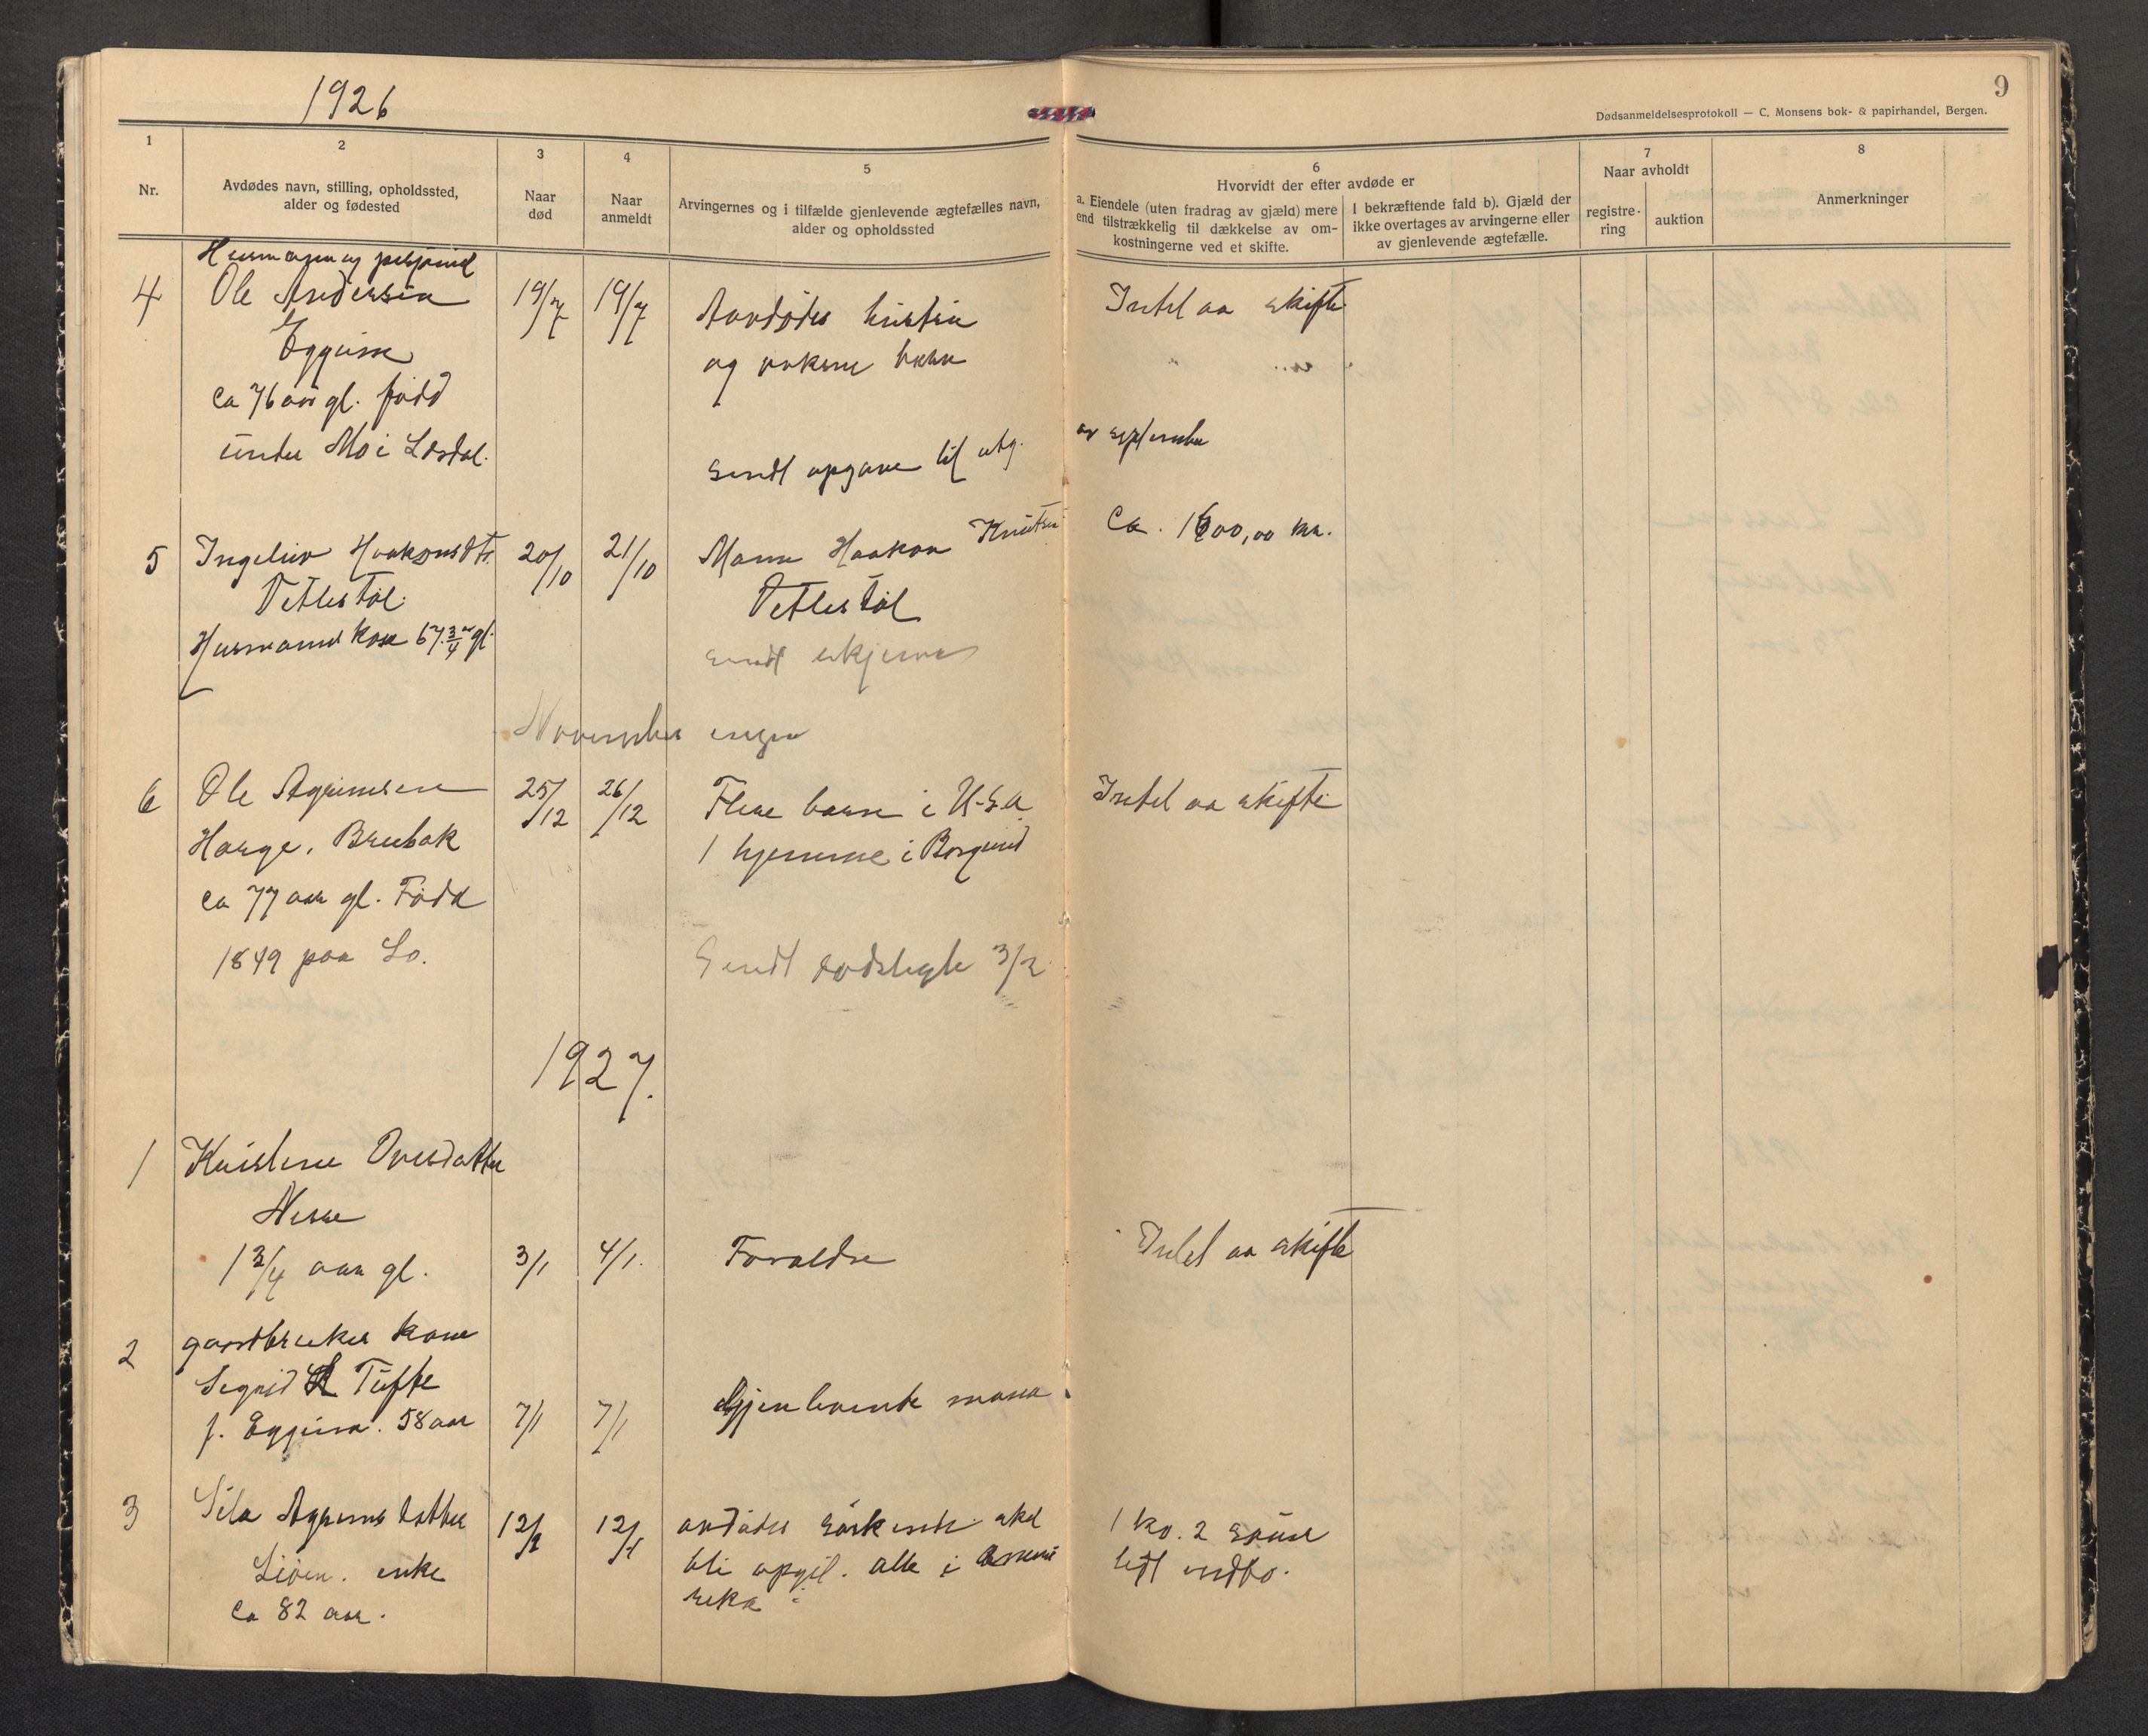 1926
9
Dødsanmeldelsesprotokoll — C. Monsens bok- & papirhandel, Bergen.
1
Nr.
2
Avdødes navn, stilling, opholdssted,
alder og fødested
3
Naar
død
4
Naar
anmeldt
5
Arvingernes og i tilfælde gjenlevende ægtefælles navn,
alder og opholdssted
6
Hvorvidt der efter avdøde er
a. Eiendele (uten fradrag av gjæld) mere
end tilstrækkelig til dækkelse av om-
kostningerne ved et skifte.
I bekræftende fald b). Gjæld der
ikke overtages av arvingerne eller
av gjenlevende ægtefælle.
7
Naar avholdt
registre-
ring
auktion
8
Anmerkninger
Husmann og
4
Ole Andersen
19/7
19/7
Avdødes
Intet aa skifte
Eggum
og voksne barn
ca 76 aar gl. född
under Mo i Lærdal.
Sendt opgave til utg.
av september
5
Ingeliv Haakonsdtr.
20/10
21/10
Mann Haakon Knutsen
Ca. 1600,00 kr.
Vetlestøl.
Vetlestøl
Husmannskone 67 3/4 gl.
sendt
November ingen
6
Ole Agrimsen
25/12
26/12
Flere barn i U.S.A.
Intet aa skifte
Horge, Brubak
1 hjemme i Borgund
ca 77 aar gl. Född
1849 paa Lo.
Sendt 3/2
1927.
1
Kristine Olesdatter
Nesse
1 3/4 aar gl.
3/1
4/1.
Foreldre
Intet aa skifte
2
gardbruker kone
Sigrid Tufte
f. Eggum. 58 aar
7/1
7/1
Gjenlevende mann
3
Sila Agrimsdatter
12/1
12/1
avdødes søskende skal
1 ko. 2 sauer
Liöen. enke
bli opgit. alle i Amerika
litt indbo.
ca 82 aar.